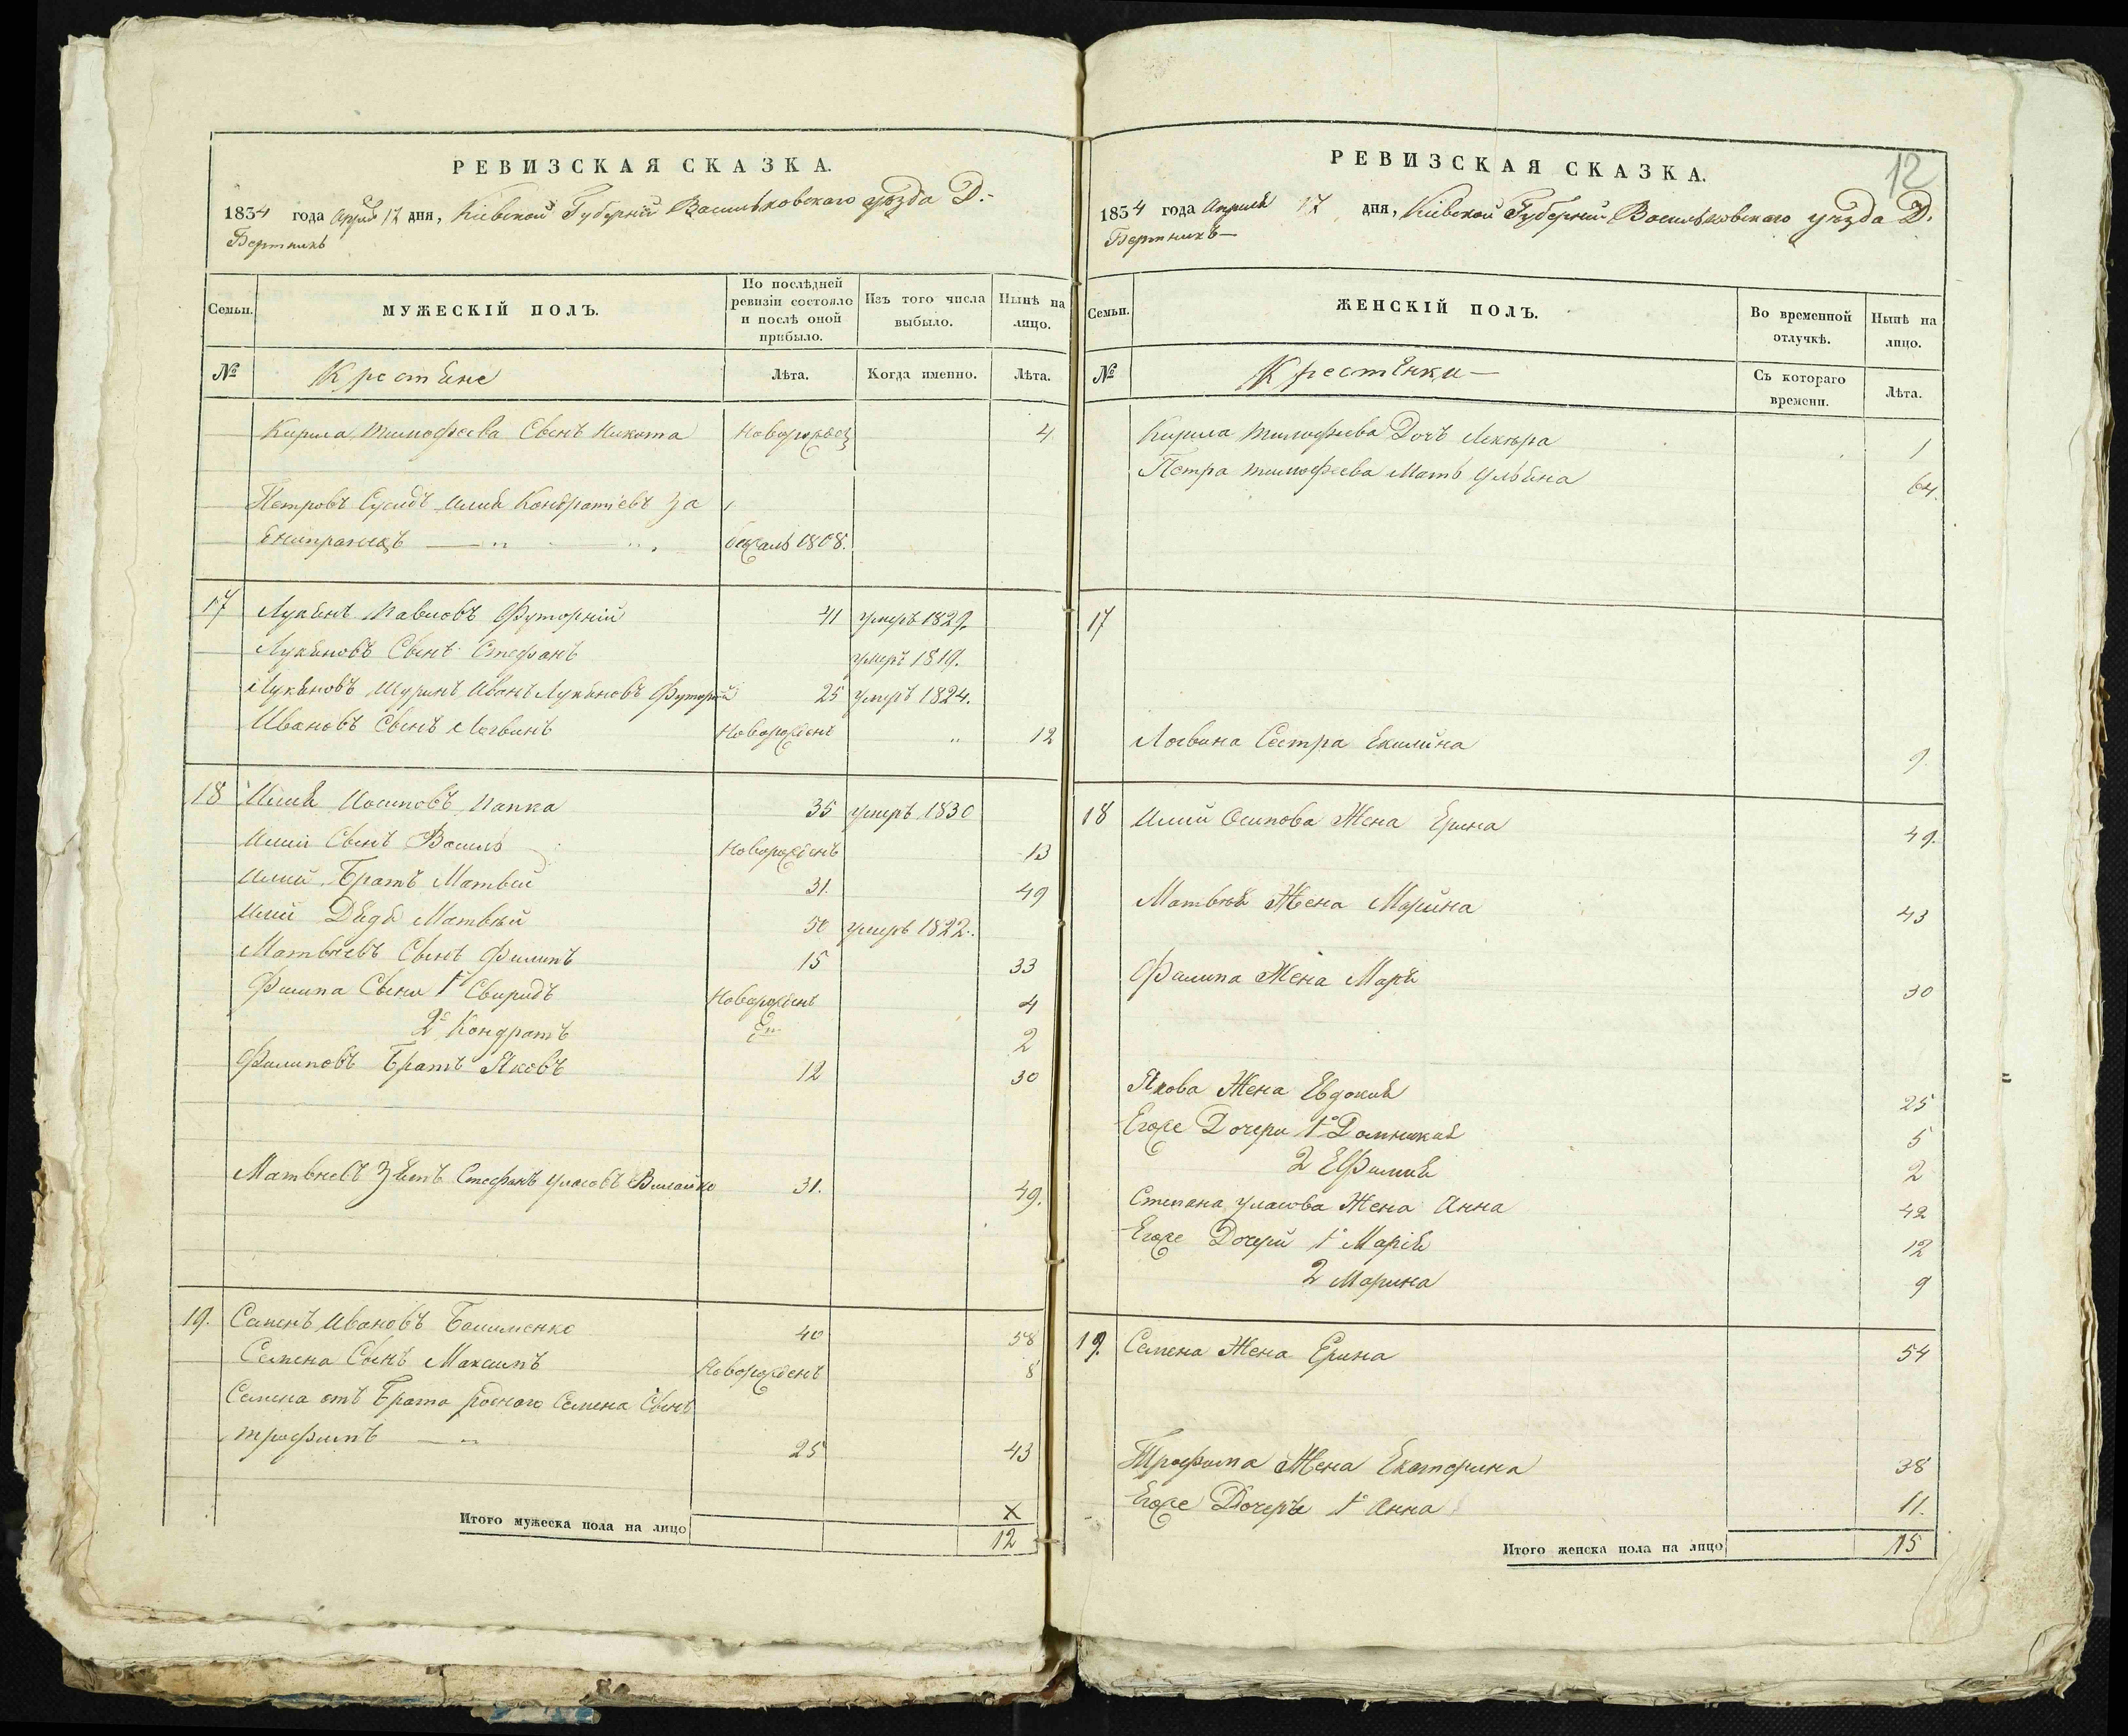 РЕВИЗСКАЯ СКАЗКА.
1834 года Апреля 17 дня, Кіевской Губерніи Васильковскаго уезда Д.
Бертникъ
Семьи.
МУЖЕСКІЙ ПОЛЪ.
По послѣдней ревизіи состояло и послѣ оной прибыло.
Изъ того числа выбыло.
Нынѣ на лицо.
№
Крестяне
Лѣта.
Когда именно.
Лѣта.
Кирила Тимофеева Сынъ Никита Новорожден 4
Петровъ Сусидъ Илия Кондратіевъ за
бежалъ 1808.
17 Лукянъ Павловъ Футорній 41 умеръ 1829.
Лукяновъ Сынъ Стефанъ умеръ 1819.
Лукяновъ Шуринъ Иванъ Лукяновъ Футорній 25 умеръ 1824.
Ивановъ Сынъ Логвинъ Новорожденъ " 12
18 Илия Иосиповъ Папка 35 умеръ 1830
Илии Сынъ Василь Новорожденъ 13
Илии Братъ Матвей 31. 49
Илии Дядя Матвѣй 50 умеръ 1822.
Матвѣевъ Сынъ Филипъ 15 33
Филипа Сыни 1й Свиридъ Новорожденъ 4
2й Кондратъ 2
Филиповъ Братъ Яковъ 12 30
Матвѣевъ Зять Стефанъ Уласовъ 31. 49.
19. Семенъ Ивановъ 40 58
Семена Сынъ Максимъ Новорожденъ 8
Семена отъ Брата родного Семена Сынъ
Трофимъ — " 25 43
Х
Итого мужеска пола на лицо 12
12
РЕВИЗСКАЯ СКАЗКА.
1834 года Апреля 17 дня, Кіевской Губерніи Васильковскаго уезда Д.
Бертникъ—
Семьи.
ЖЕНСКІЙ ПОЛЪ.
Во временной отлучкѣ.
Нынѣ на лицо.
№
Крестянки—
Съ котораго времени.
Лѣта.
Кирила Тимофеева Дочъ 1
Петра Тимофеева Мать Уляна 64.
17
Логвина Сестра Екилина 9
18 Илии Осипова Жена Ерина 49.
Матвѣя Жена Марина 43
Филипа Жена Маря 30
Якова Жена Евдокия 25
Егоже Дочери 1я Домникия 5
2 Ефимия 2
Степана Уласова Жена Анна 42
Егоже Дочери 1я Марія 12
2 Марина 9
19. Семена Жена Ерина 54
Трофима Жена Екатерина 38
Егоже Дочеръ 1я Анна 11.
Итого женска пола на лицо 15